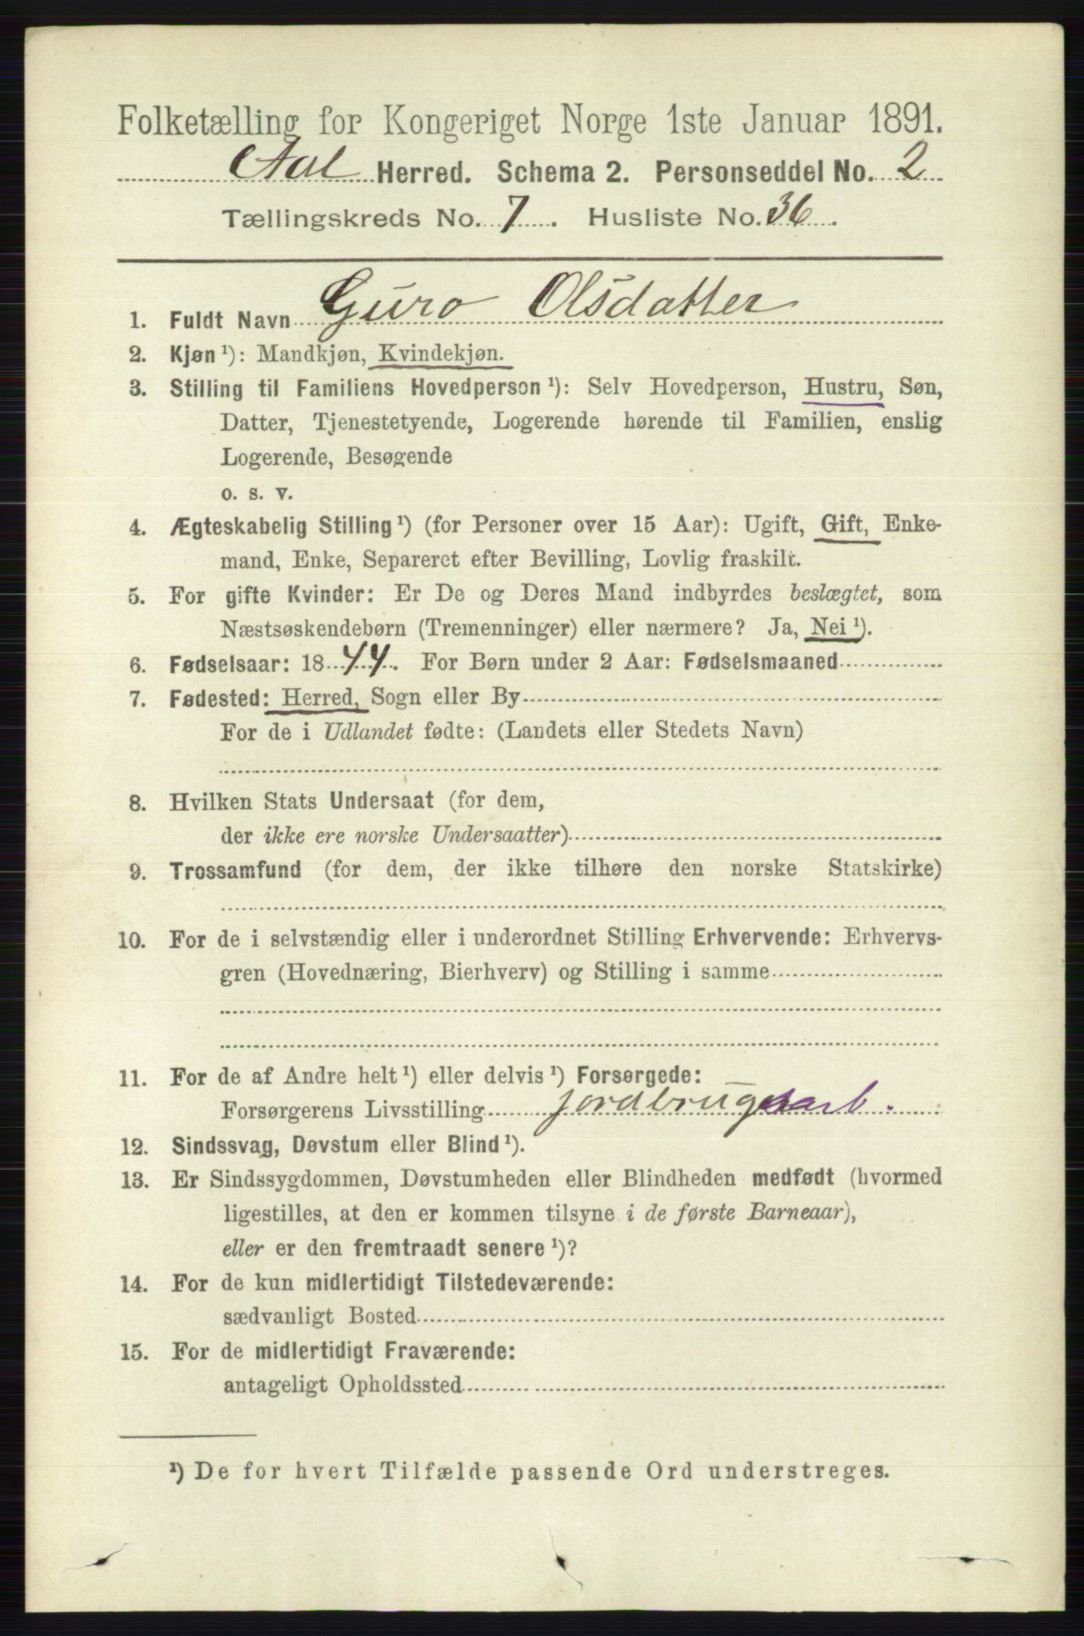 Folketælling for Kongeriget Norge 1ste Januar 1891.
Aal Herred. Schema 2. Personseddel No. 2
Tællingskreds No. 7. Husliste No. 36.
1. Fuldt Navn Guro Olsdatter
2. Kjøn ¹): Mandkjøn, Kvindekjøn.
3. Stilling til Familiens Hovedperson ¹): Selv Hovedperson, Hustru, Søn,
Datter, Tjenestetyende, Logerende hørende til Familien, enslig
Logerende, Besøgende
o. s. v.
4. Ægteskabelig Stilling ¹) (for Personer over 15 Aar): Ugift, Gift, Enke-
mand, Enke, Separeret efter Bevilling, Lovlig fraskilt.
5. For gifte Kvinder: Er De og Deres Mand indbyrdes beslægtet, som
Næstsøskendebørn (Tremenninger) eller nærmere? Ja, Nei ¹).
6. Fødselsaar: 1844. For Børn under 2 Aar: Fødselsmaaned
7. Fødested: Herred, Sogn eller By
For de i Udlandet fødte: (Landets eller Stedets Navn)
8. Hvilken Stats Undersaat (for dem,
der ikke ere norske Undersaatter)
9. Trossamfund (for dem, der ikke tilhøre den norske Statskirke)
10. For de i selvstændig eller i underordnet Stilling Erhvervende: Erhvervs-
gren (Hovednæring, Bierhverv) og Stilling i samme
11. For de af Andre helt ¹) eller delvis ¹) Forsørgede:
Forsørgerens Livsstilling jordbrugsarb.
12. Sindssvag, Døvstum eller Blind ¹).
13. Er Sindssygdommen, Døvstumheden eller Blindheden medfødt (hvormed
ligestilles, at den er kommen tilsyne i de første Barneaar),
eller er den fremtraadt senere ¹)?
14. For de kun midlertidigt Tilstedeværende:
sædvanligt Bosted
15. For de midlertidigt Fraværende:
antageligt Opholdssted
¹) De for hvert Tilfælde passende Ord understreges.